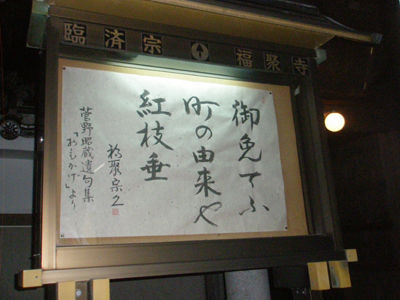 臨済宗 福聚寺
御免てふ
町の由来や
紅枝垂
福聚宗久
菅野邦蔵遺句集
「おもかげ」より